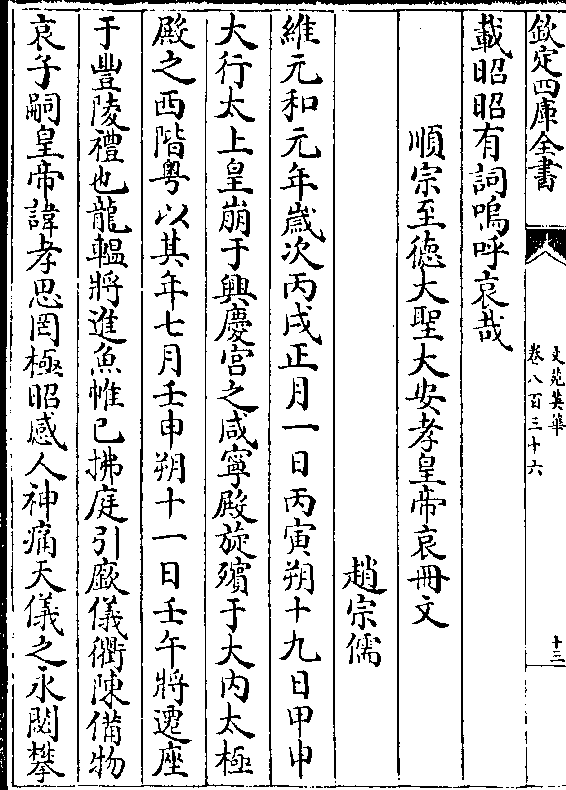 欽定四庫全書
文苑英華
卷八百三十六
十三
載昭昭有詞嗚呼哀哉
順宗至德大聖大安孝皇帝哀冊文
趙宗儒
維元和元年歲次丙戌正月一日丙寅朔十九日甲申
大行太上皇崩于興慶宮之咸寧殿旋殯于大內太極
殿之西階粤以其年七月壬申朔十一日壬午將遷座
于豐陵禮也龍轀將進魚帷已拂庭引廞儀衢陳備物
哀子嗣皇帝諱孝思罔極昭感人神痛天儀之永閟攀